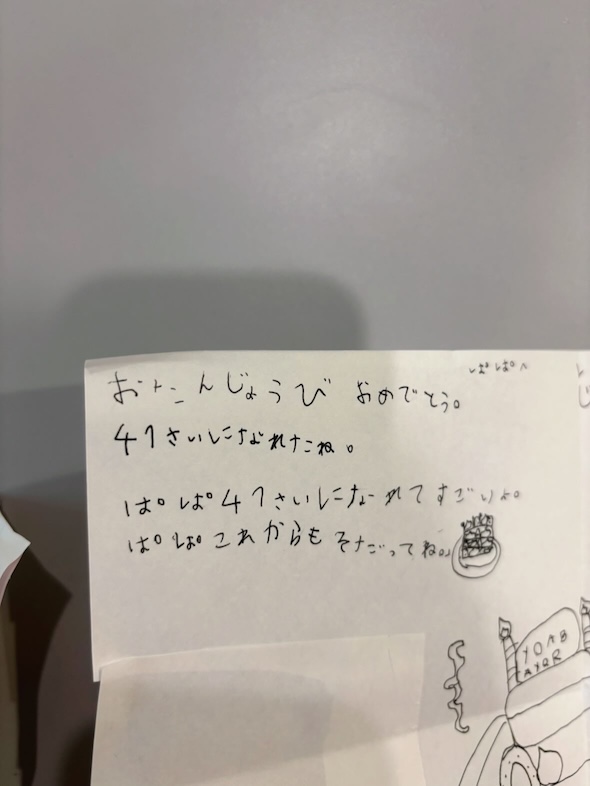 ぱぱへ
おたんじょうび おめでとう。
47さいになれたね。
ぱぱ47さいになれてすごいよ。
ぱぱこれからもそだってね。